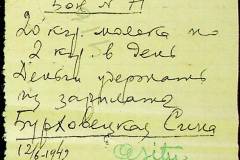 Бон № 11
20 кгр. молока по
2 кгр. в день
Деньги удержать
из зарплаты
Бурховецкая Сима
12/6 1942